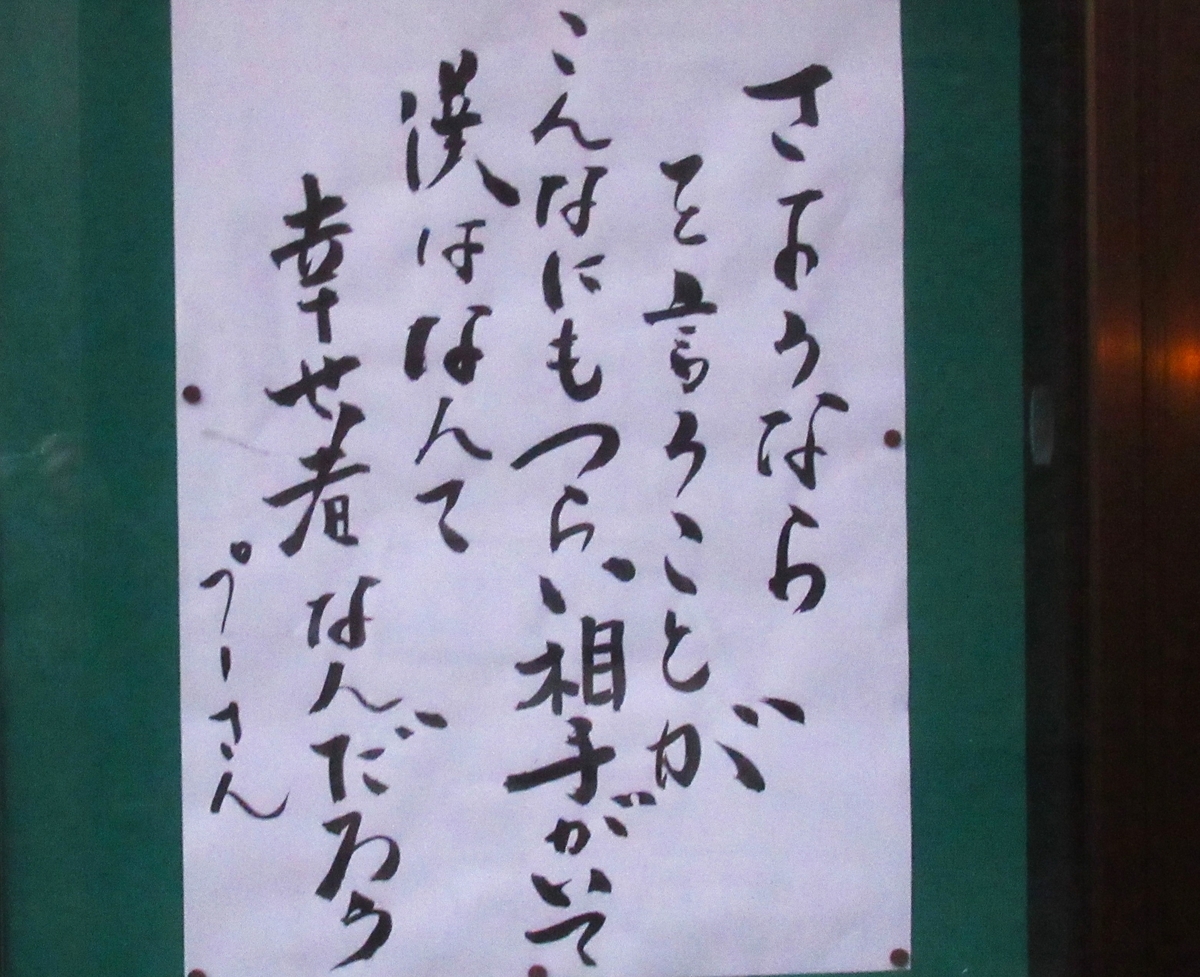 さようなら
と言うことが
こんなにもつらい相手がいて
漢はなんて
幸せ者なんだろう
プーさん